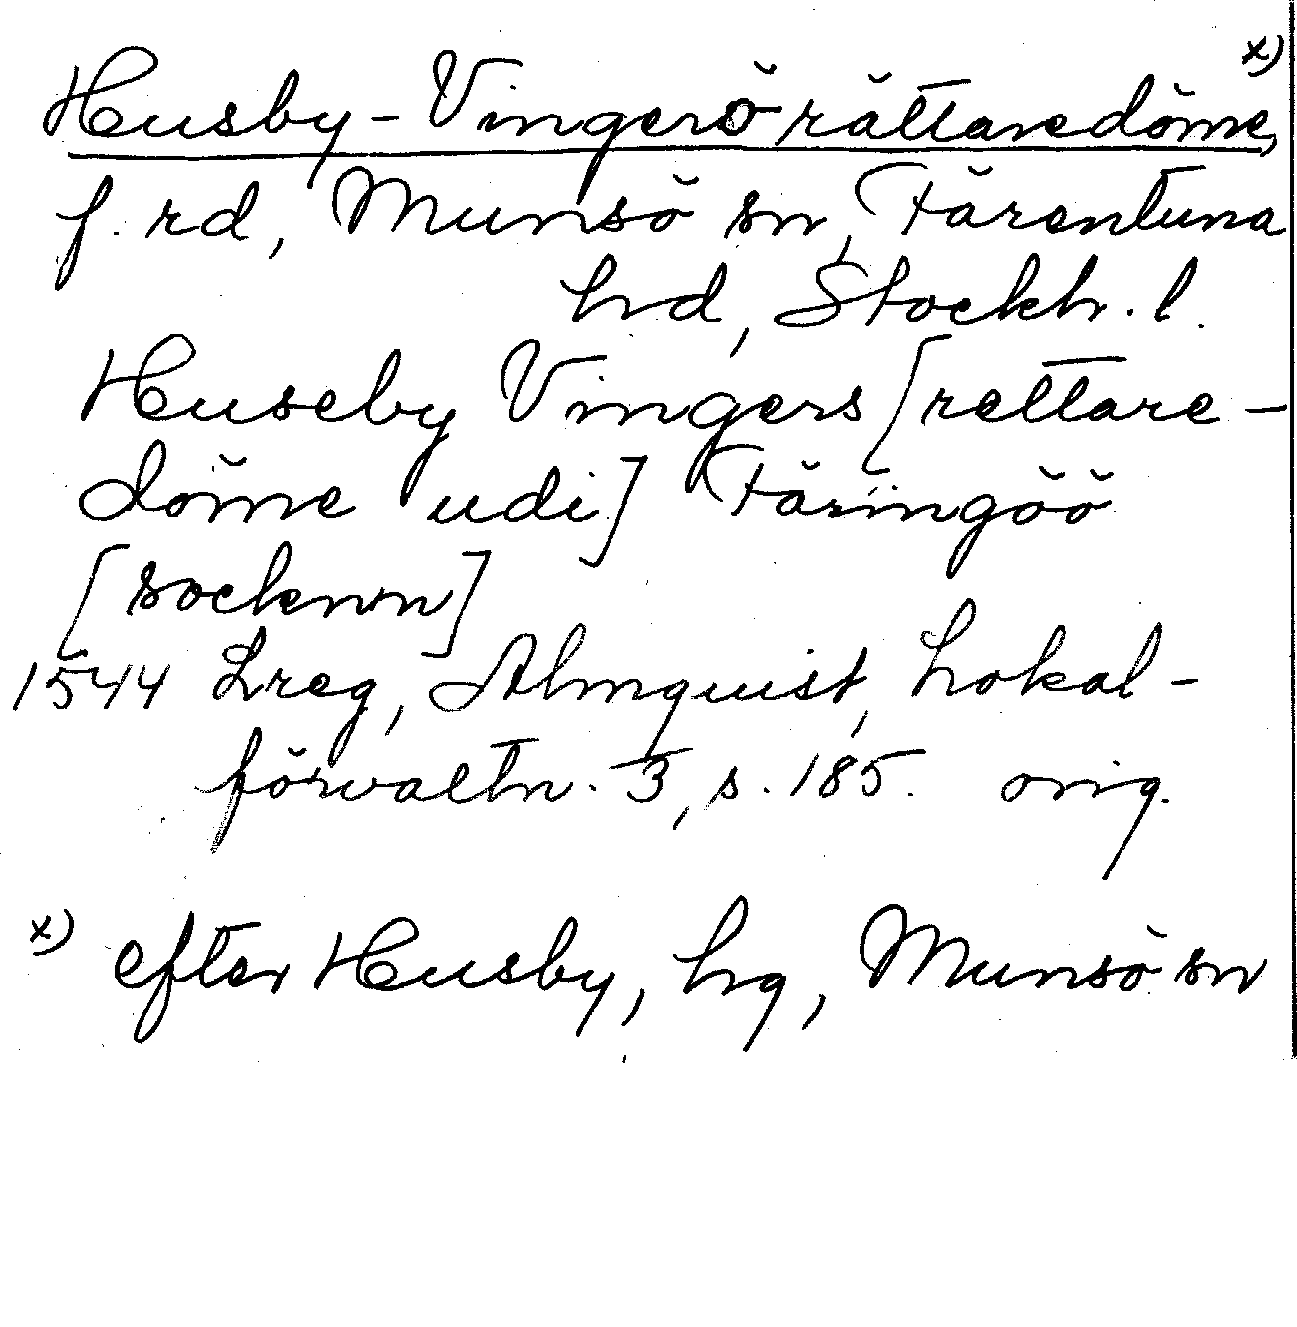 Husby-Vingerö rättaredöme, x)
f. rd, Munsö sn, Färentuna
hd, Stockh. l.
Huseby Vingers [rettare-
döme udi] Färingöö
[socknn]
1544 Lreg, Almquist, Lokal-
förvaltn. 3, s. 185. orig.
x) efter Husby, hg, Munsö sn